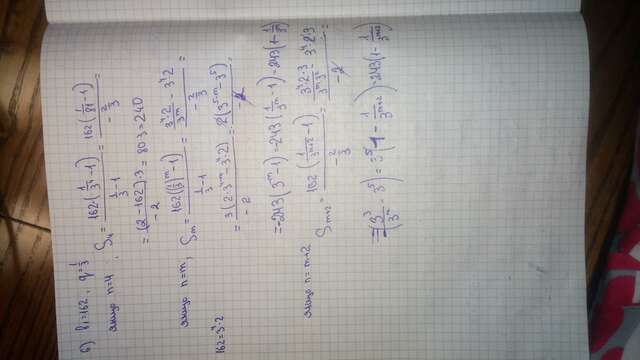 б) b₁=162, q=1/3
якщо n=4, S₄ = 162·(1/3⁴ -1) / (1/3 -1) = 162(1/81 -1) / (-2/3) =
= (2-162)·3 / -2 = 80·3=240
якщо n=m, Sₘ = 162((1/3)ᵐ -1) / (1/3 -1) = (3⁴·2/3ᵐ - 3⁴·2) / (-2/3) =
162=3⁴·2
= 3(2·3⁴⁻ᵐ - 3⁴·2) / -2 = 2(3⁵⁻ᵐ - 3⁵) / -2 =
= -243(3⁻ᵐ -1) = -243(1/3ᵐ -1) = 243(1- 1/3ᵐ)
якщо n=m+2 Sₘ₊₂ = 162(1/3ᵐ⁺² -1) / (-2/3) =
= 3⁵(1 - 1/3ᵐ⁺²) = 243(1- 1/3ᵐ⁺²)